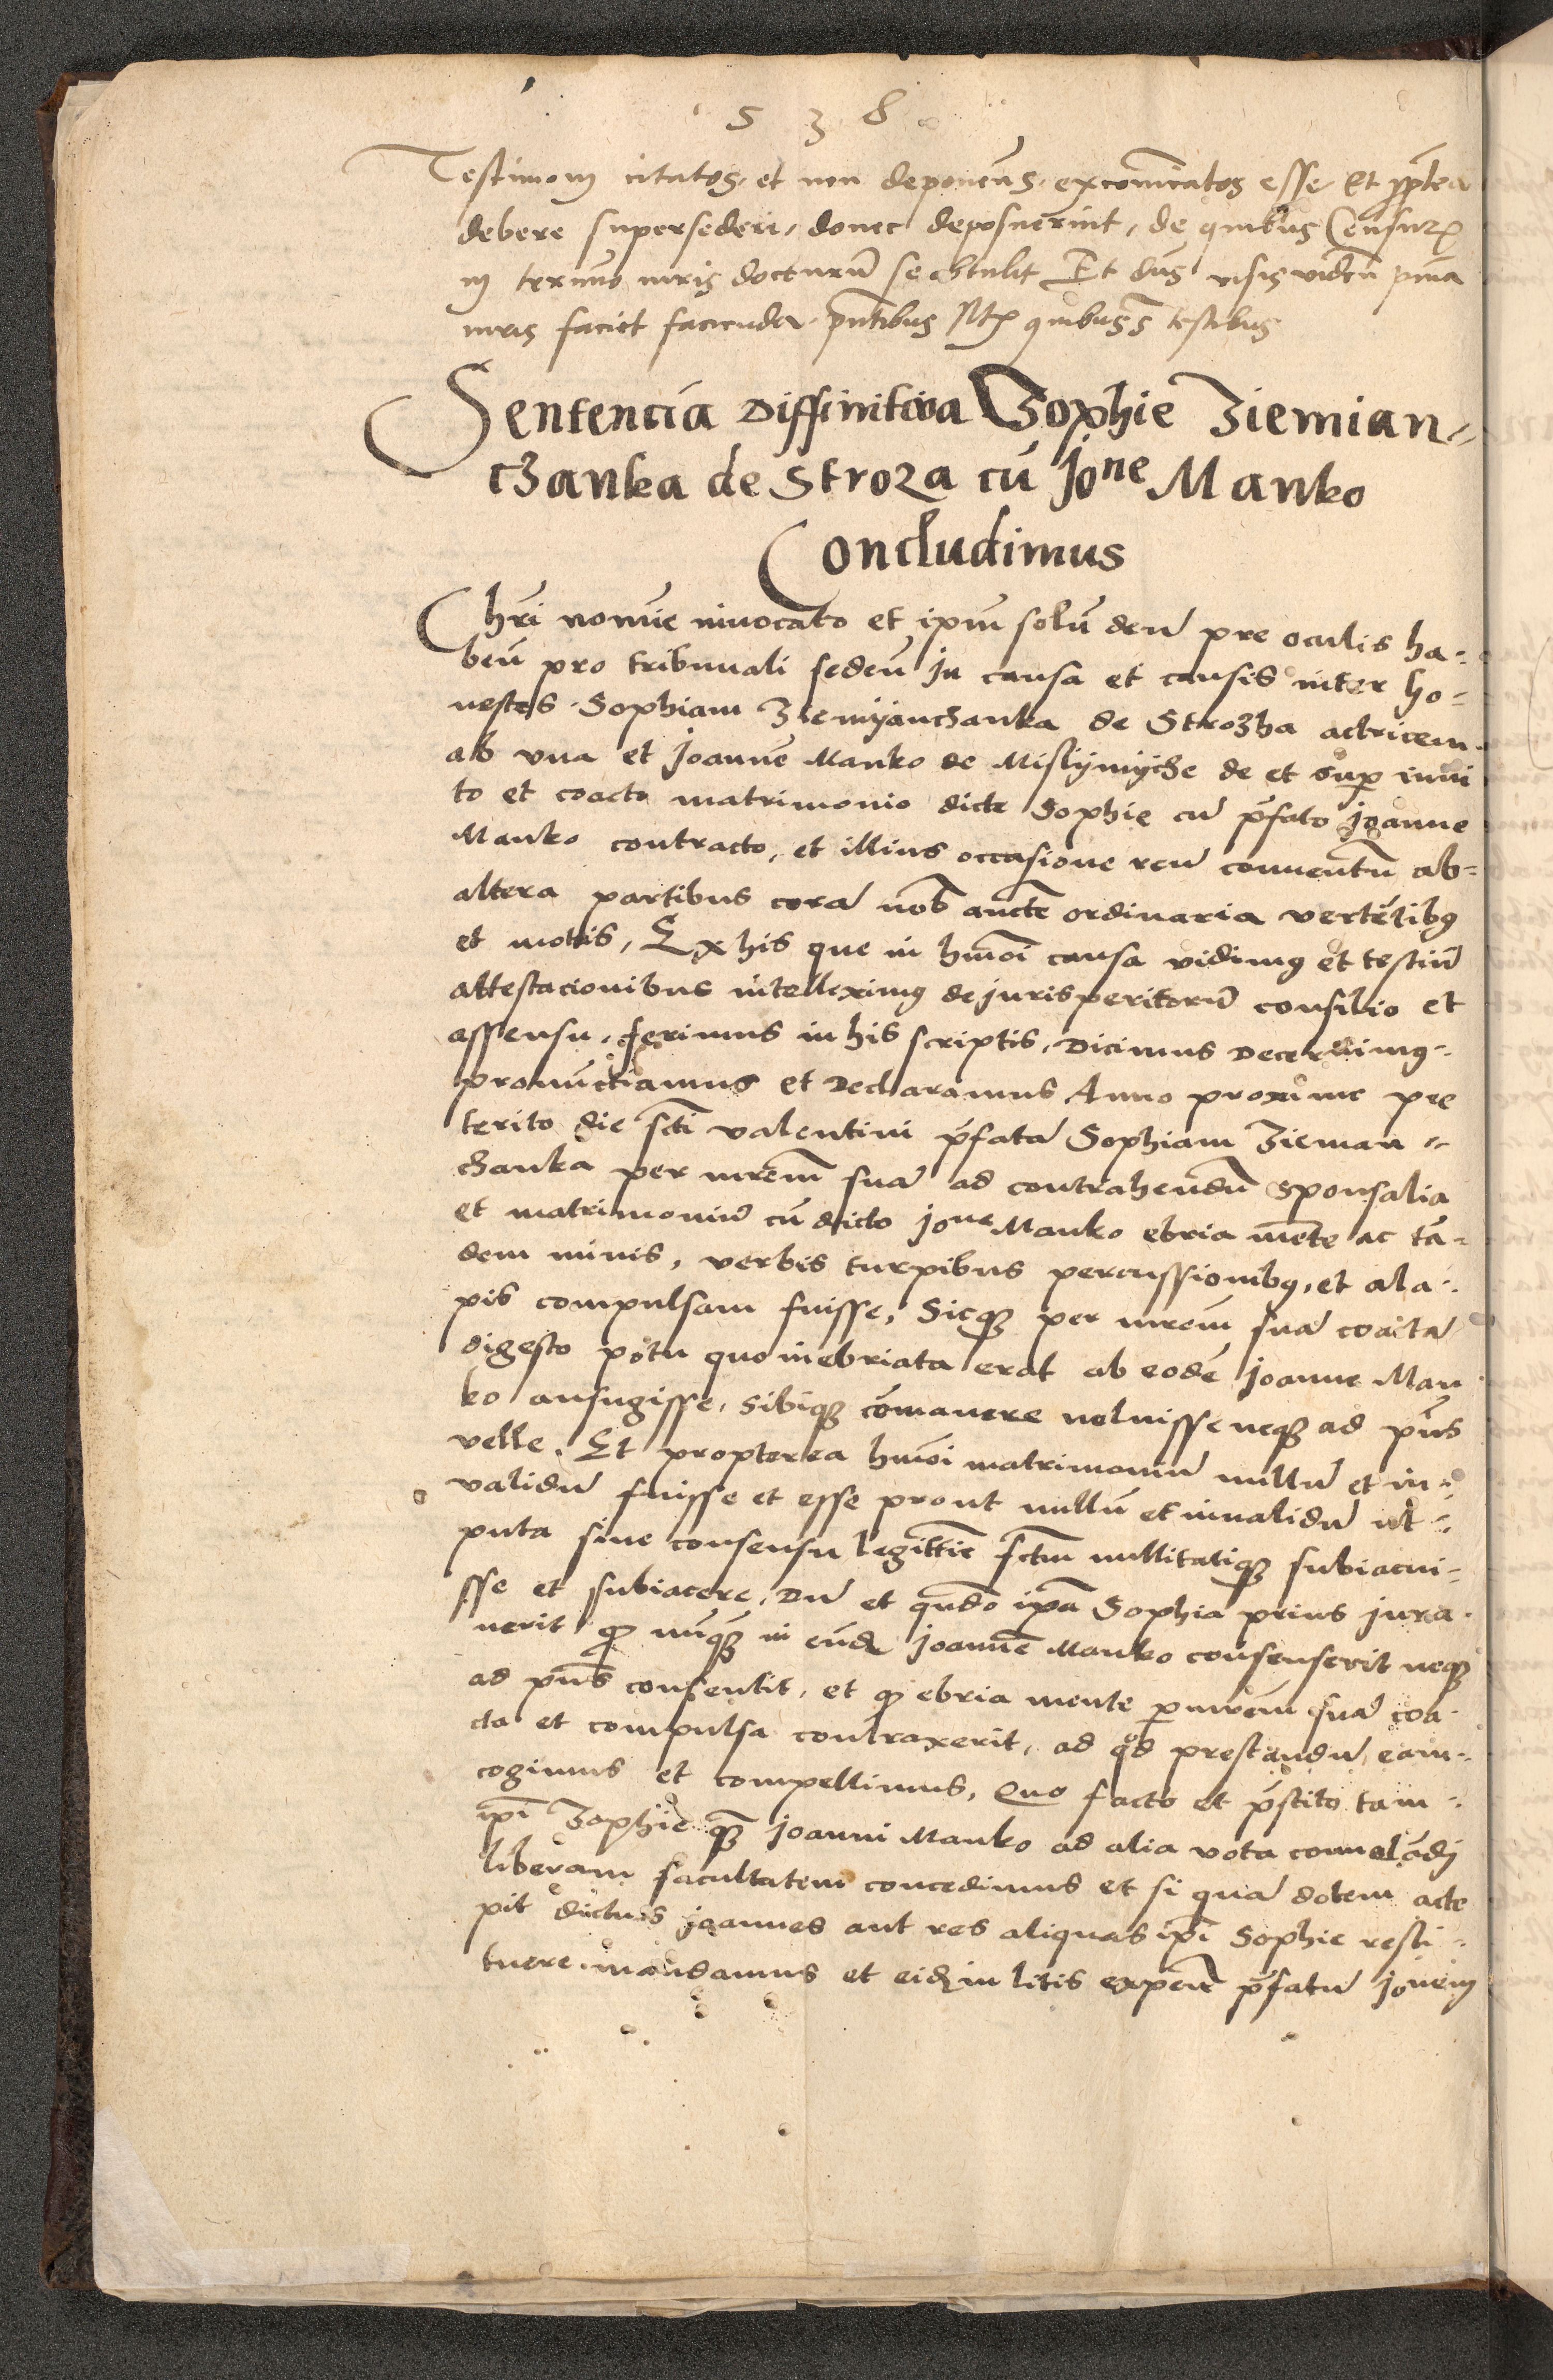 1538
Testimoniū citatos et non deponeñs excōicatos esse Et ppterea
debere supersederi, donec deposuerint, de quibus Censuris
in termino iuris docturū se obtulit Et dñs visis vidēn
iuris faciet facienda pñtibus quibuss testibus
Sentencia Diffinitiva Zophie Ziemian=
czanka de Stroza cū Joⁿᵉ Manko
Concludimus
Chri nomīe invocato et ipm̄ solū deū pre oculis ha=
beñ pro tribunali sedeñ In causa et causis inter ho=
nestos Sophiam Ziemyanczanka de Strozha actricem
ab vna et Joannē Manko de Mislymycze de et sup invi
to et coacto matrimonio dicte Sophie cū p̄fato Joanne
Manko contracto, et illius occasione reū conventū ab=
altera partibus corā nob auctē ordinaria vertētibȝ
et motis, Ex his que in hmōi causa vidimȝ et testiū
attestacionibus intelleximȝ de jurisperitorū consilio et
assensu, ferimus in his scriptis, Dicimus Decernimȝ=
pronūctiamus et Declaramus Anno proxime pre
terito die scti valentini p̄fatā Sophiam Zieman=
czanka per mrem̄ suā ad contrahendū sponsalia
et matrimoniū cū dicto Joⁿᵉ Manko ebria mēte ac tā=
dem minis, verbis turpibus percussionibȝ, et ala=
pis compulsam fuisse, Sicqȝ per mrem̄ suā coactā
digesto potu quo inebriata erat ab eodē Joanne Man
ko aufugisse, sibiqȝ cōmanere noluisse neqȝ ad pñs
velle. Et propterea hmōi matrimoniū nullū et in=
validū fuisse et esse prout nullū et invalidū ut=
puta sine consensu legittīe fctm nullitatiqȝ subiacui=
sse et subiacere, Dū et qn̄do ipā Sophia prius jura=
verit qȝ nūqȝ in eūdē Joannē Manko consenserit neqȝ
ad pñs consentit, et qȝ ebria mente p mrem̄ suā coa=
cta et compulsa contraxerit, ad qd prestandū eam=
cogimus et compellimus, Quo facto et p̄stito tam=
ipi Zophie qȝ Joanni Manko ad alia vota convolādi
liberam facultatem concedimus et si quā dotem acce
pit dictus Joannes aut res aliquas ipi Sophie resti=
tuere mandamus et eidē in litis expeñ p̄fatū Jonem